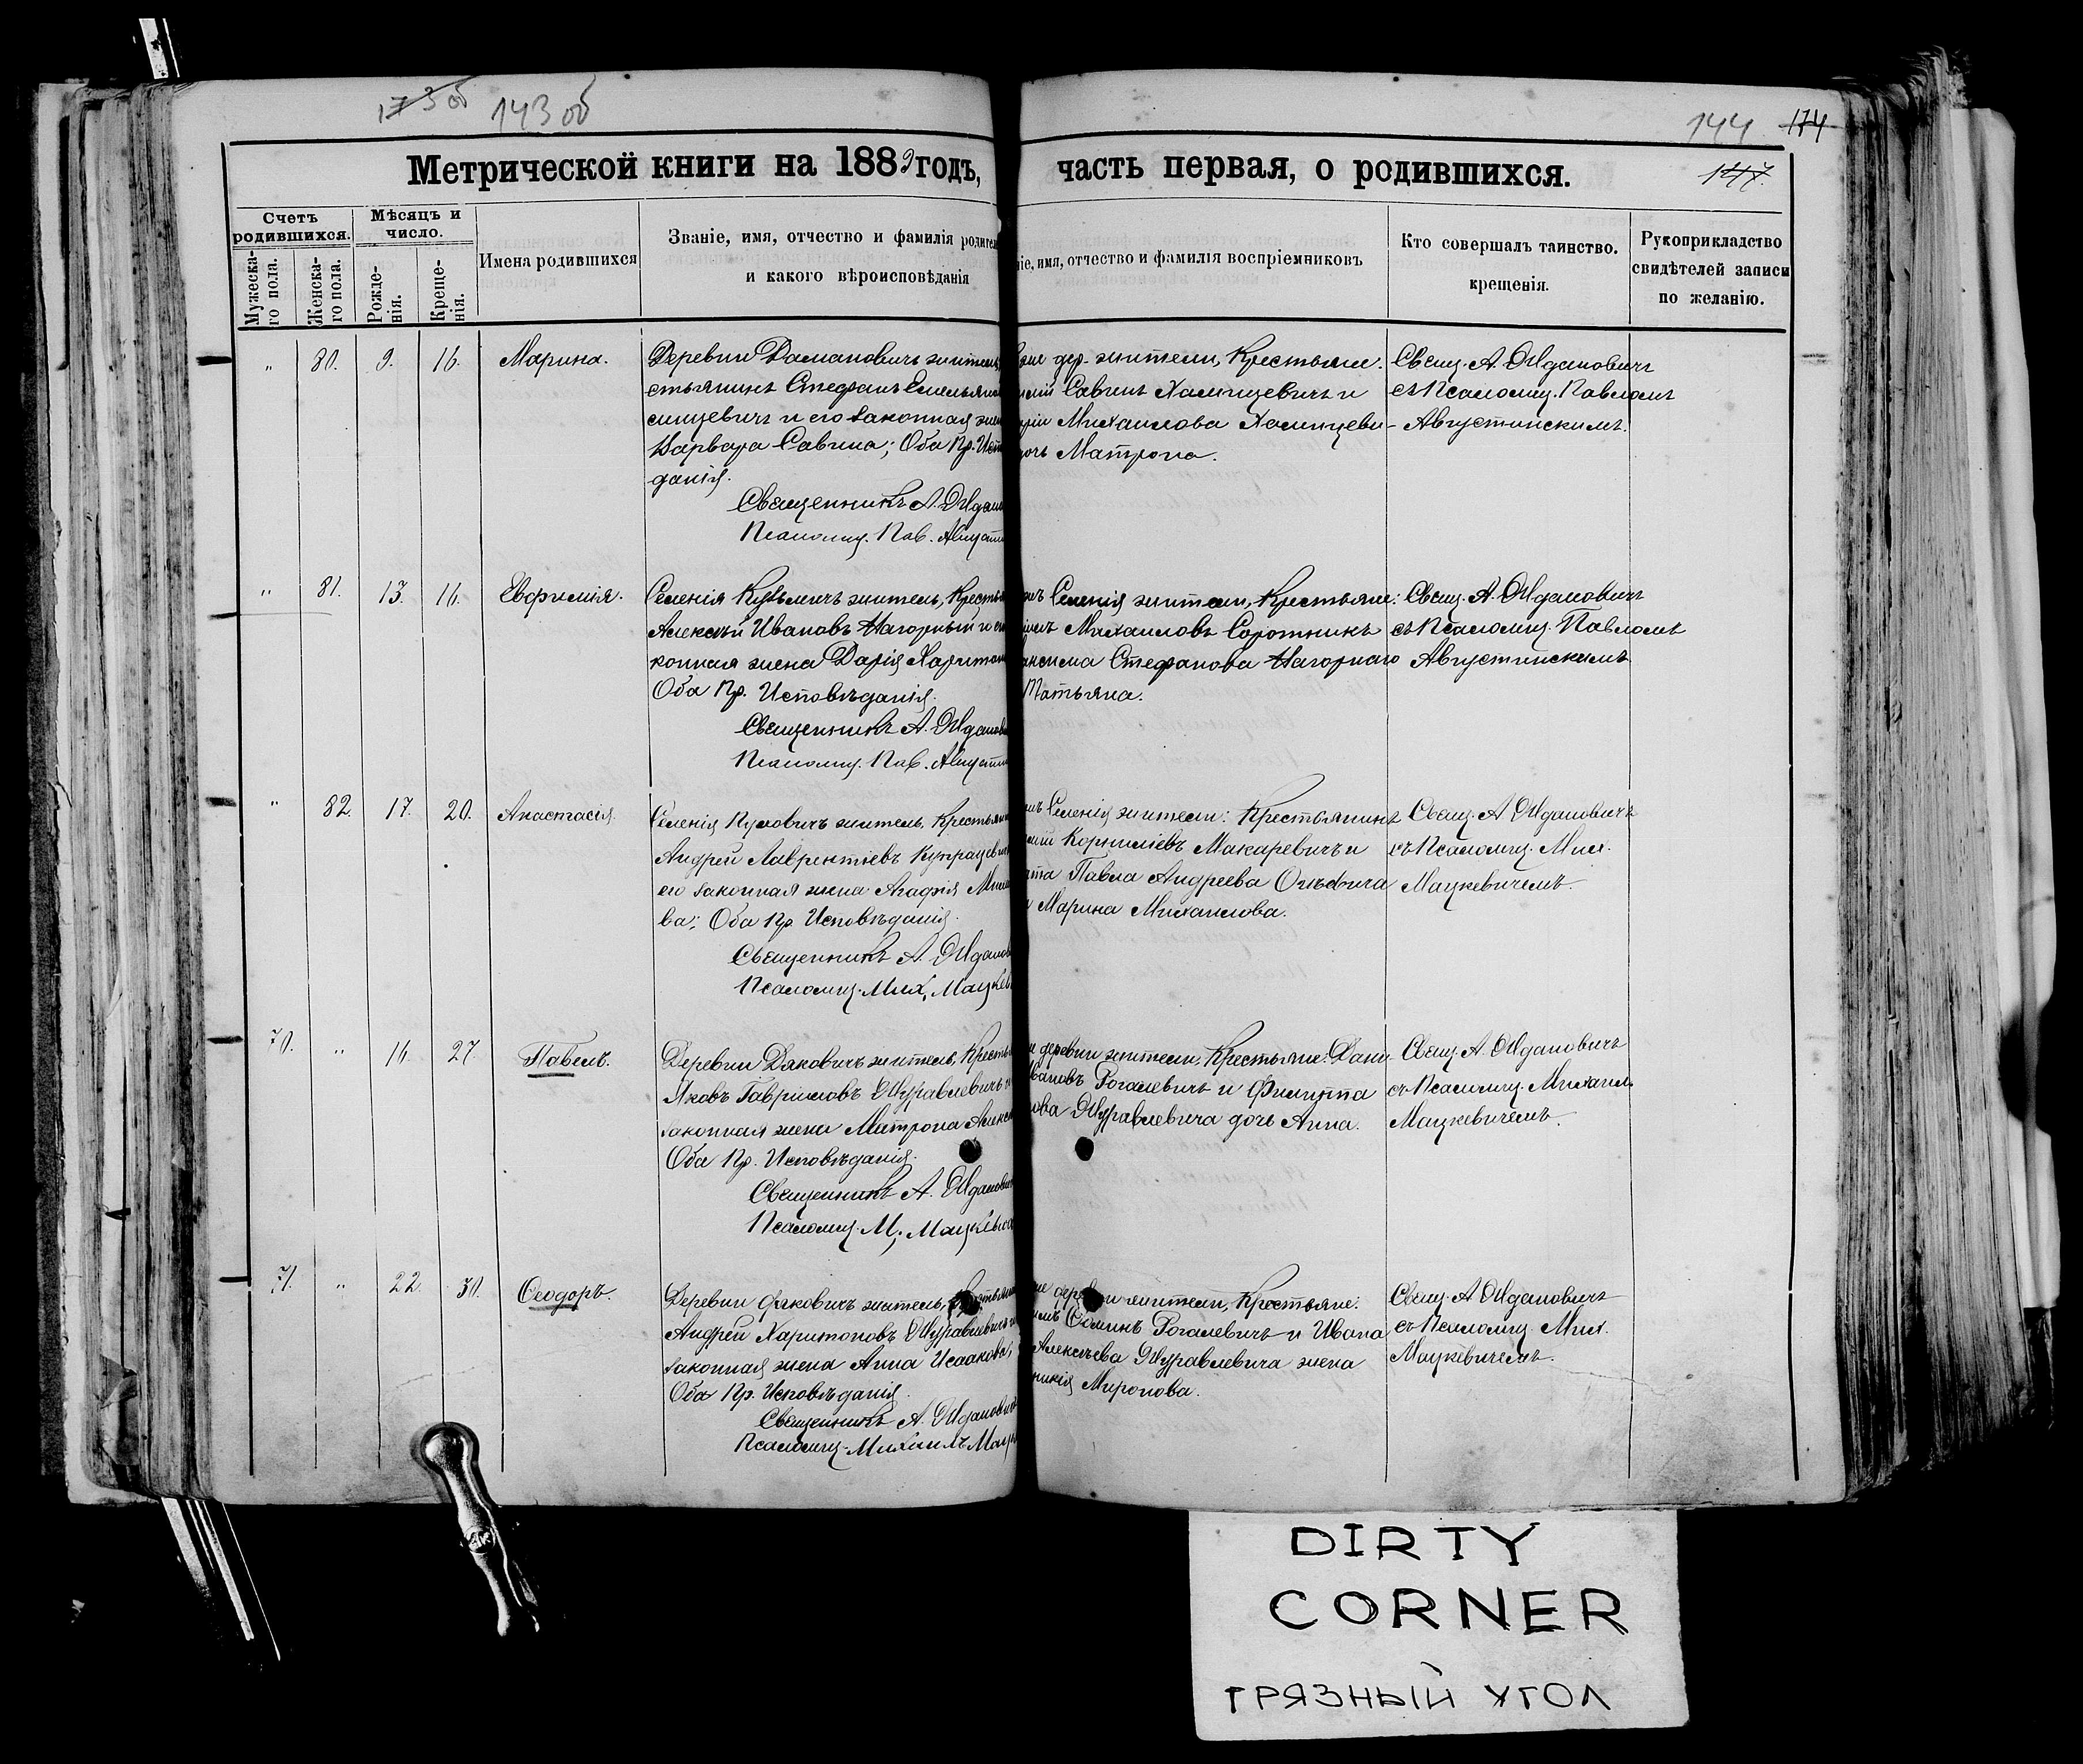 173 об 143 об
144 174
147.
Метрической книги на 1889 годъ, часть первая, о родившихся.
Счетъ родившихся.
Мѣсяцъ и число.
Мужеска-го пола.
Женска-го пола.
Рожде-нія.
Креще-нія.
Имена родившихся
Званіе, имя, отчество и фамилія родител
и какого вѣроисповѣданія
ніе, имя, отчество и фамилія воспріемниковъ
Кто совершалъ таинство.
крещенія.
Рукоприкладство
свидѣтелей записи
по желанію.
„ 80. 9. 16. Марина.
Деревни Даманович житель
стьянинъ Стефанъ Емельянов
сицевичъ и его законная жен
Варвара Савина; Оба Пр. Исп
данія.
Священникъ А. Ждан
Псаломщ. Пав. Августи
дер. жители, Крестьяне.
Савинъ Хамицевичъ и
Михаилова Хамицеви-
дочь Матрона.
Свящ. А. Ждановичъ
съ Псаломщ. Павломъ
Августинскимъ.
„ 81. 13. 16. Евфимія.
Селенія Кузьмичъ житель, Крестья
Алексѣй Ивановъ Нагорный и е
конная жена Дарія Харитон
Оба Пр. Исповѣданія.
Священникъ А. Жданов
Псаломщ. Пав. Августи
Селенія жители, Крестьяне:
Михаиловъ Сиротникъ
Стефанова Нагорнаго
Татьяна.
Свящ. А. Ждановичъ
съ Псаломщ. Павломъ
Августинскимъ
„ 82. 17. 20. Анастасія.
Селенія Пуховичъ житель, Крестьян
Андрей Лаврентіевъ Купрацеви
его законная жена Агафія Миха
ва; Оба Пр. Исповѣданія.
Священникъ А. Жданов
Псаломщ. Мих. Мацкев
Селенія жители: Крестьянинъ
Корниліевъ Макаревичъ и
Павла Андреева
Марина Михаилова.
Свящ. А Ждановичъ
съ Псаломщ. Мих.
Мацкевичемъ.
70. „ 16. 27. Павелъ.
Деревни Дяковичъ житель, Крестья
Яковъ Гавріиловъ Журавлевичъ и
законная жена Матрона Алекс
Оба Пр. Исповѣданія.
Священникъ А. Жданович
Псаломщ. М. Мацкевич
деревни жители, Крестьяне: Дани
Ивановъ Рогалевичъ и Филиппа
ова Журавлевича дочь Анна.
Свящ. А. Ждановичъ
съ Псаломщ. Михаил.
Мацкевичемъ.
71. „ 22. 30. Ѳеодоръ.
Деревни Дяковичъ житель, Крестьян
Андрей Харитоновъ Журавлевичъ и
законная жена Анна Исаакова,
Оба Пр. Исповѣданія.
Священникъ А. Жданович
Псаломщ. Михаилъ Мацк
деревни жители, Крестьяне:
Соминъ Рогалевичъ и Ивана
Алексѣева Журавлевича жена
Миронова.
Свящ. А Ждановичъ
съ Псаломщ. Мих.
Мацкевичемъ.
DIRTY
CORNER
ГРЯЗНЫЙ УГОЛ